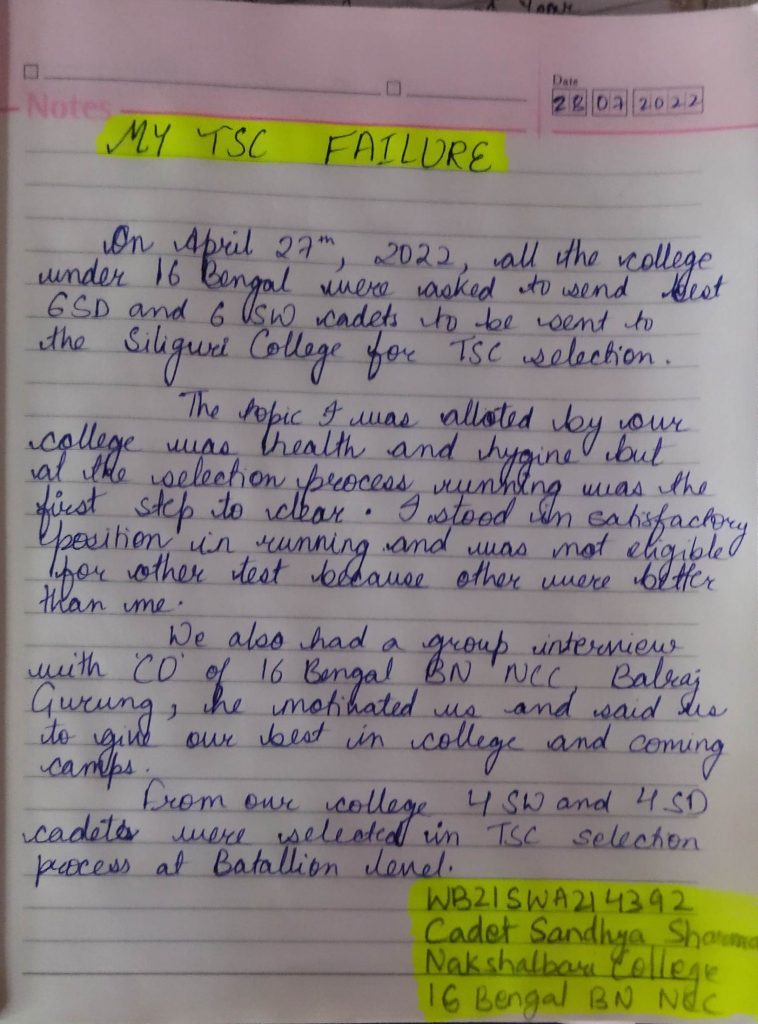 Date
28 07 2022
Notes
MY TSC FAILURE
On April 27th, 2022, all the college
under 16 Bengal were asked to send best
6SD and 6 SW cadets to be sent to
the Siliguri College for TSC selection.
The topic I was alloted by our
college was health and hygine but
at the selection process running was the
first step to clear. I stood in satisfactory
position in running and was not eligible
for other test because other were better
than me.
We also had a group interview
with 'CO' of 16 Bengal BN NCC, Balraj
Gurung, he motivated us and said us
to give our best in college and coming
camps.
From our college 4 SW and 4 SD
cadets were selected in TSC selection
process at Batallion level.
WB21SWA214392
Cadet Sandhya Sharma
Nakshalbari College
16 Bengal BN NCC